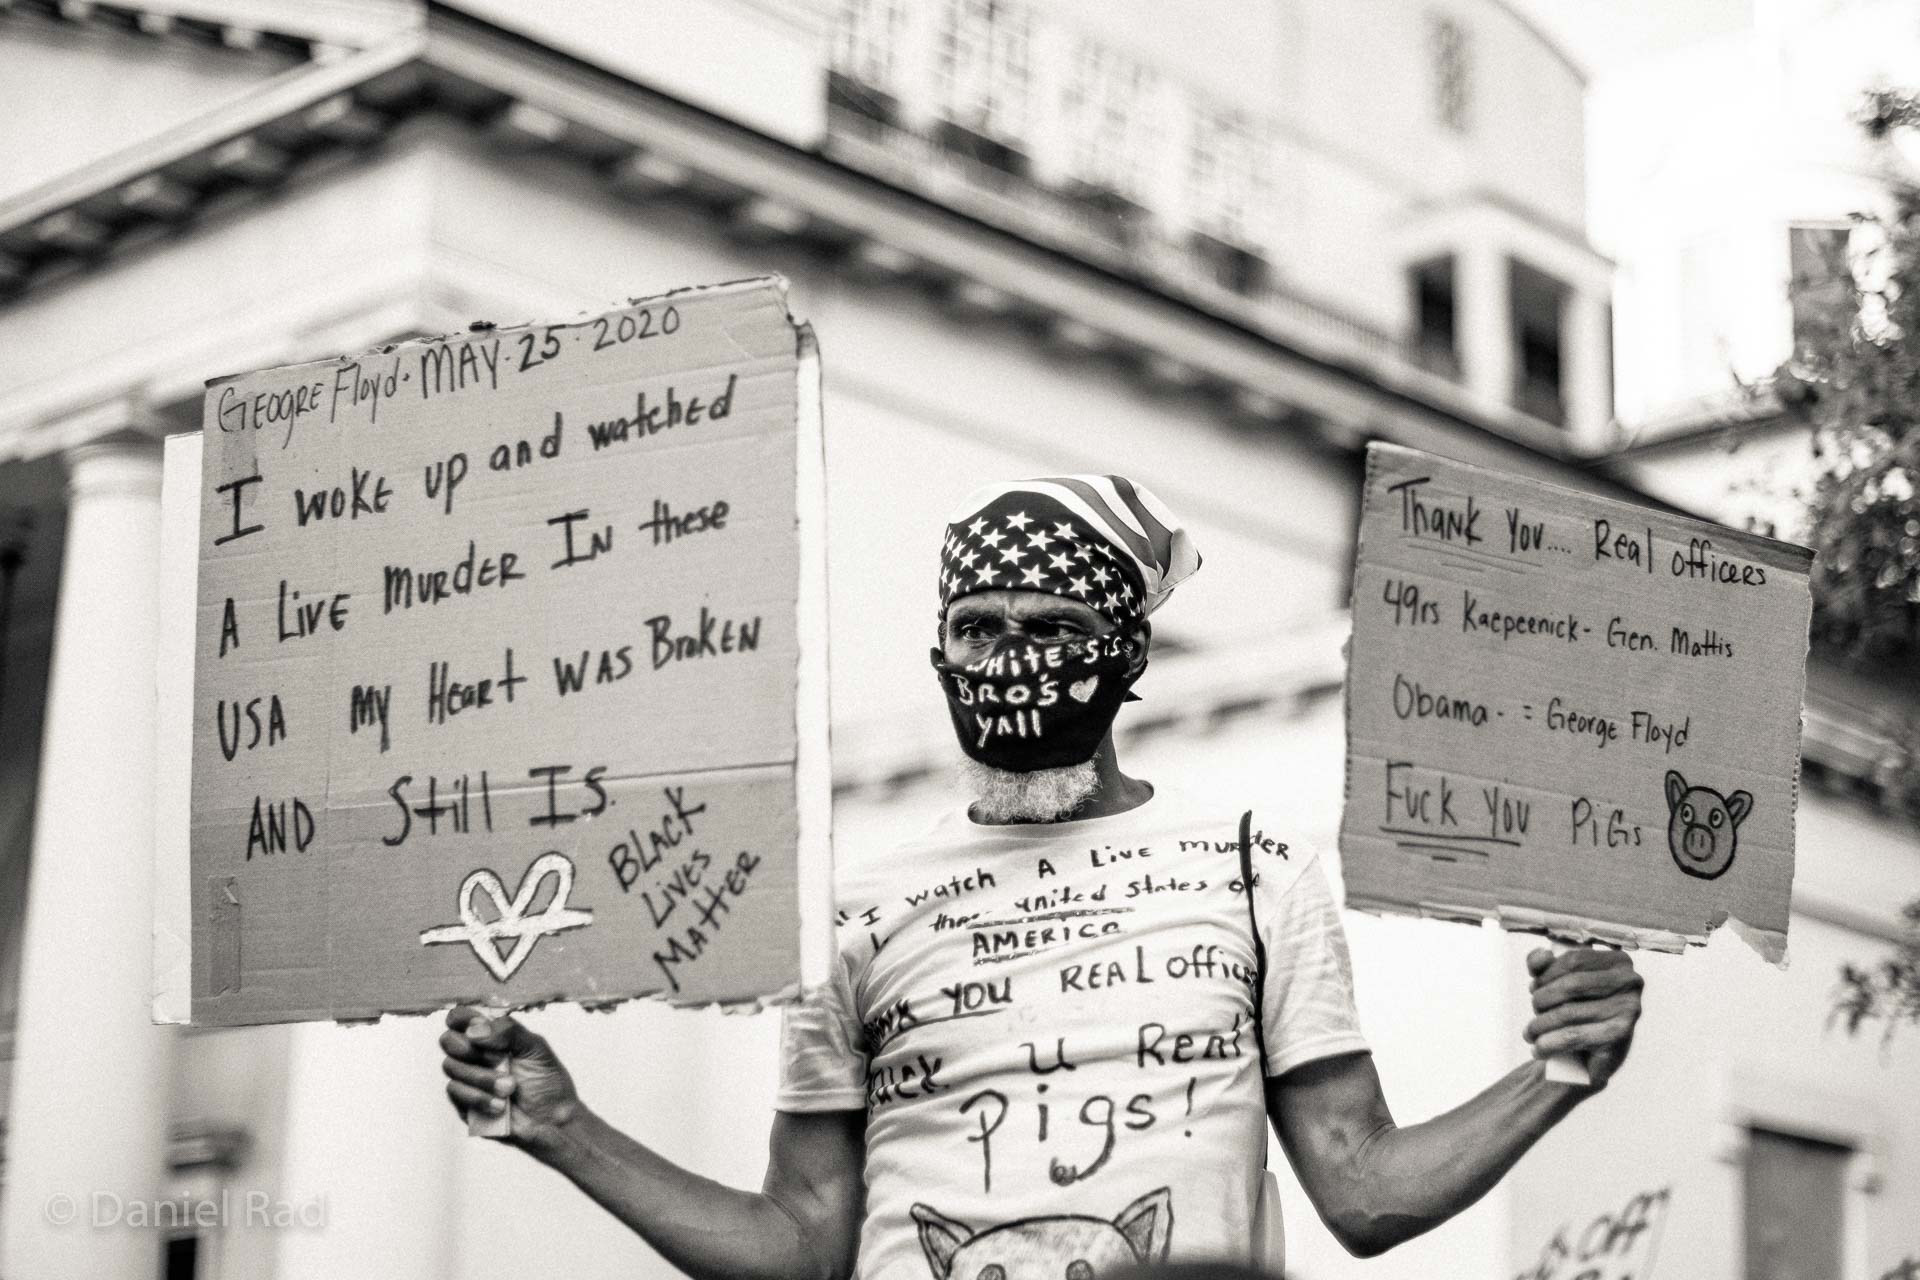 GEOGRE Floyd. MAY. 25. 2020
I woke up and watched
A LivE MURDER IN these
USA My Heart WAS BROKEN
AND Still IS.
BLACK
LivES
MAttER
WHitE SiS
BRO'S
yAll
Thank You.... Real Officers
49rs Kaepeenick- Gen. Mattis
Obama - = George Floyd
Fuck You PiGs
"I watch A LivE muRdER
United States of
AMERICA
YOU REAL Office
U Real
Pigs!
© Daniel Rad